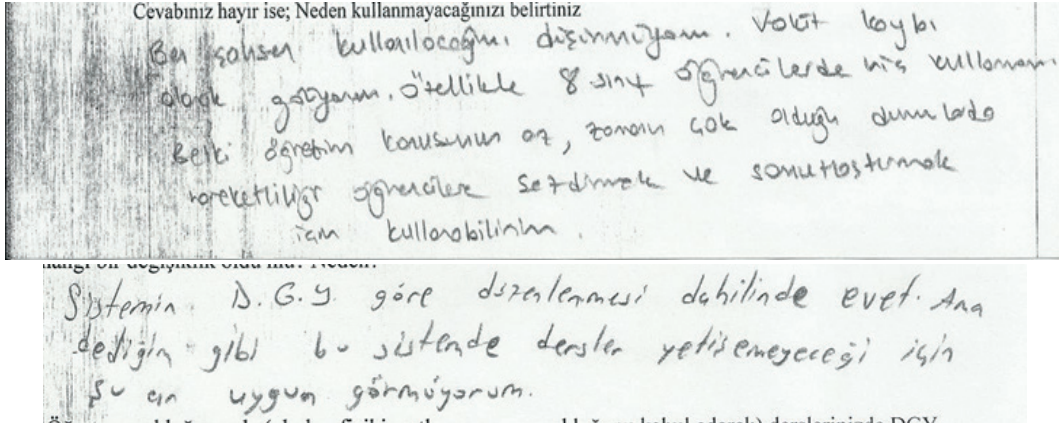 Cevabınız hayır ise; Neden kullanmayacağınızı belirtiniz
Ben şahsen kullanılacağını düşünmüyorum. Vakit kaybı
olarak görüyorum. Özellikle 8 sınıf öğrencilerde hiç kullanmam
Belki öğretim konusunun az, zamanın çok olduğu durumlarda
hareketliliği öğrencilere sezdirmek ve somutlaştırmak
için kullanabilirim.
hangi bir değişiklik oldu mu? Neden?
Sistemin D.G.Y. göre düzenlenmesi dahilinde evet. Ama
dediğim gibi bu sistemde dersler yetişemeyeceği için
şu an uygun görmüyorum.
derslerinizde DGY